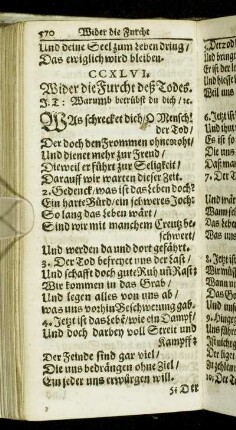 570 Wider die Furcht
Und deine Seel zum leben dring/
Das ewiglich wird bleiben.
CCXLVI.
Wider die Furcht deß Todes.
J. T: Warumb betrübst du dich/ ꝛc.
WAs schrecket dich/ O Mensch!
der Tod/
Der doch den Frommen ohne noht/
Und dienet mehr zur Freud/
Dieweil er führt zur Seligkeit/
Darauff wir warten dieser Zeit.
2. Gedenck/ was ist das Leben doch?
Ein harte Bürd/ ein schweres Joch:
So lang das Leben wärt/
Sind wir mit manchem Creutz beschwert/
Und werden da und dort gefährt.
3. Der Tod befreyet uns der Last/
Und schafft doch gute Ruh uñ Rast:
Wir kommen in das Grab/
Und legen alles von uns ab/
was uns vorhin Beschwerung gab.
4. Jetzt ist das Lebẽ/ wie ein Dampf/
Und doch darbey voll Streit und
Kampff:
Der Feinde sind gar viel/
Die uns bedrängen ohne Ziel/
Ein jeder uns erwürgen will.
5: Der